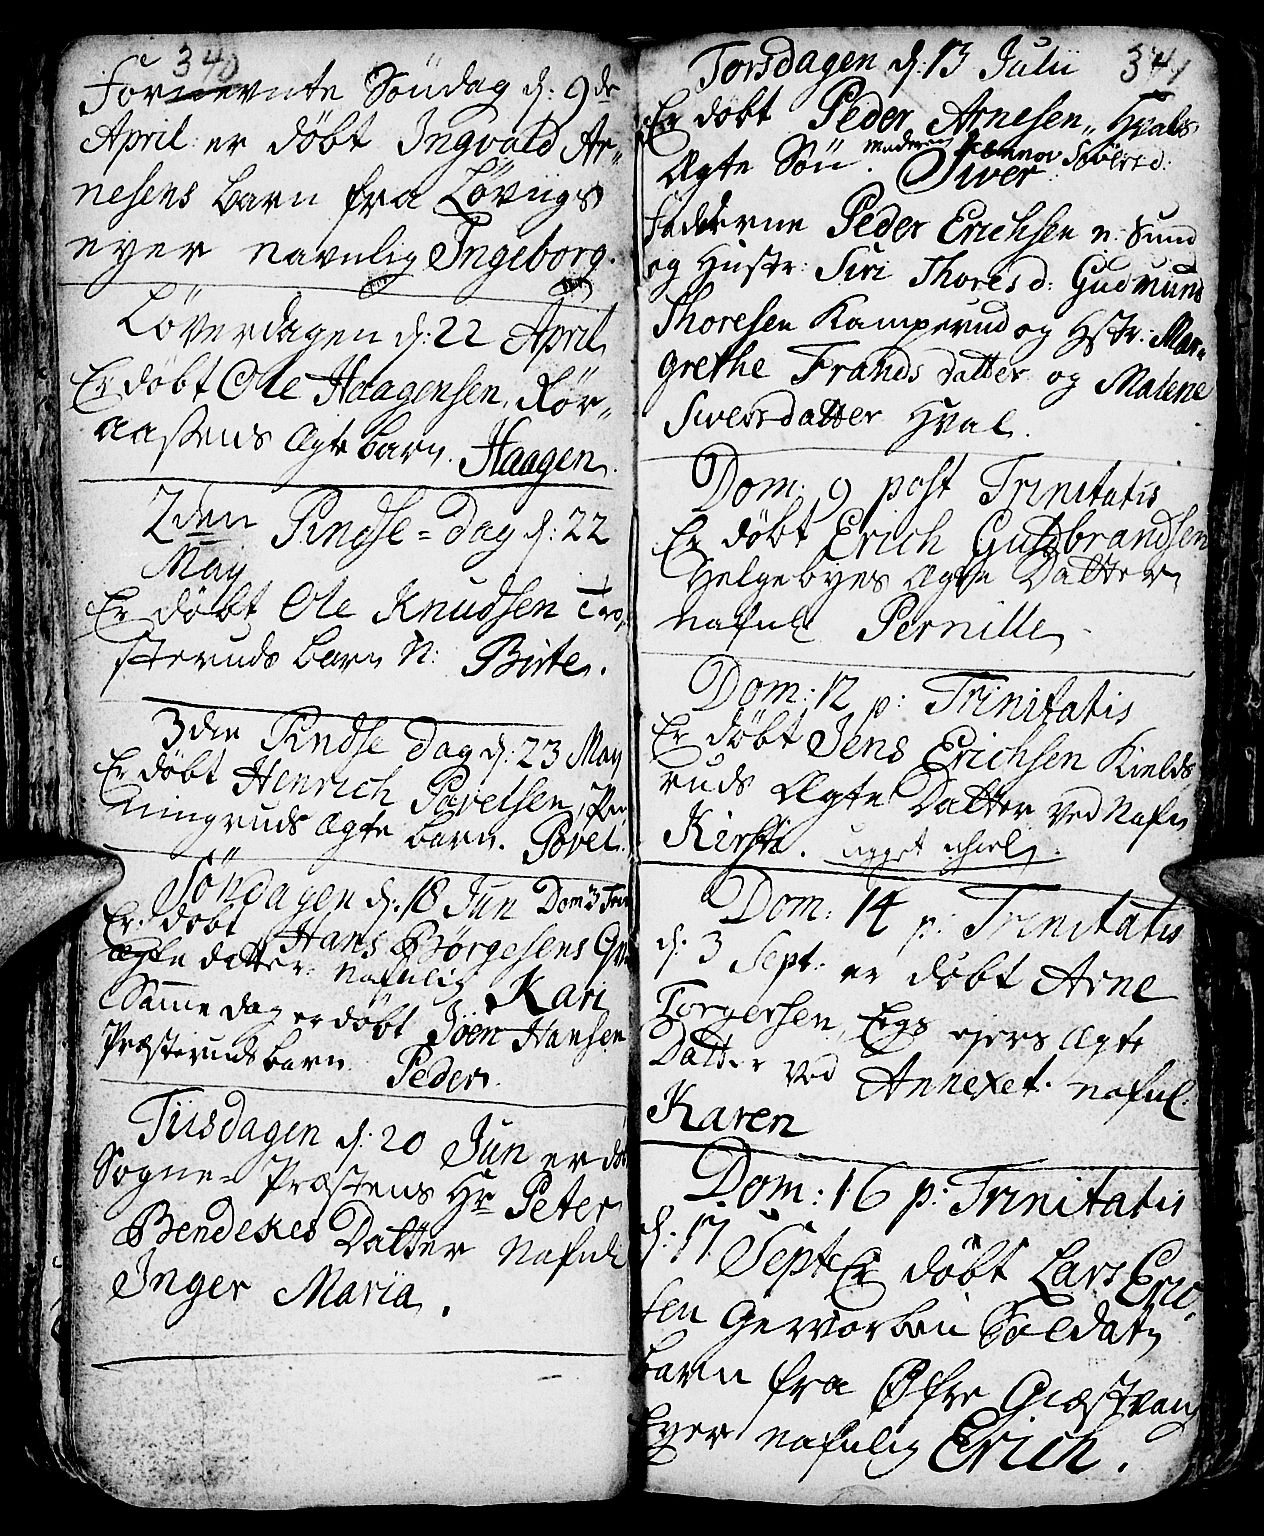 340
Fornevnte Söndag d: 9de
April er döbt Ingvald Ar„
nesens barn fra Lövigs
eyer navnlig Ingeborg.
Löverdagen d: 22 April
Er döbt Ole Haagensen, Rör„
aasens ægte barn. Haagen.
2den Pindse=dag d: 22
May
Er döbt Ole Knudsen Tro„
steruds barn N: Birte.
3die Pindse dag d: 23 May
Er döbt Henrich Povelsen,
ningruds ægte barn. Povel.
Söndagen d. 18 Jun Dom 3 Trin
Er döbt Hans Börgesens
ægte datter nafnlig Kari
Samme dag er döbt Joen Hansen
Præsteruds barn Peder.
Tiisdagen d: 20 Jun er döb
Sogne=Præstens Hr Peter
Bendekes Datter Nafnl:
Inger Maria.
341
Torsdagen d: 13 Julii
Er döbt Peder Arnesen„ Hvals
Ægte Sön. Moderen Sörensd:
Siver
Fadderne Peder Erichsen n: Sund
og Hustr: Siri Thoresd: Gudmund
Thoresen Kamperud og Hstr: Mar„
grethe Frands datter og Malene
Siversdatter Hval.
Dom: 9 post Trinitatis
Er döbt Erich Guldbrandsen
Helgebyes Ægte Datter
nafnl: Pernille
Dom: 12 p: Trinitatis
Er döbt Jens Erichsen Kields
ruds Ægte Datter ved Nafn
Kirsti.
Dom: 14 p: Trinitatis
d. 3 Sept: er döbt Arne
Torgersen, Eigs eyers Ægte
Datter ved Annexet nafnl:
Karen
Dom: 16 p: Trinitatis
d: 17 Sept: Er döbt Lars Eric„
sen Gevorben Soldats
barn fra Öfre Giæstvang
Eyer nafnlig Erich.